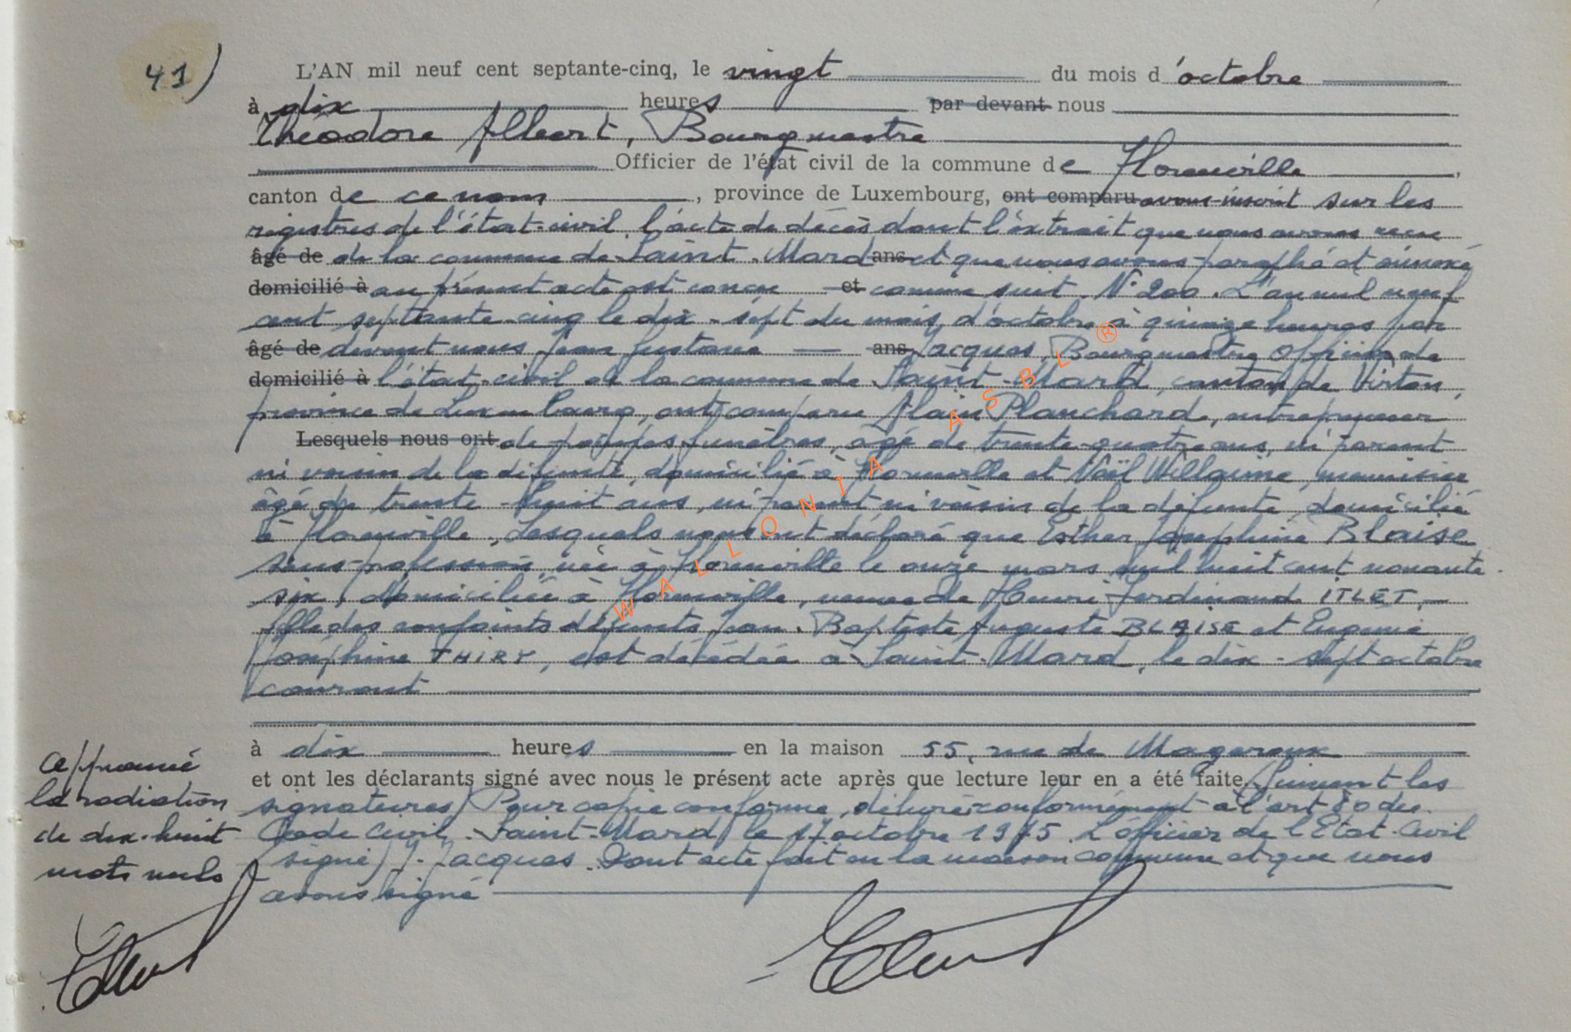 41)
L'AN mil neuf cent septante-cinq, le vingt du mois d'octobre
à dix heures par devant nous
Théodore Albert, Bourgmestre
Officier de l'état civil de la commune de Florenville,
canton de ce nom, province de Luxembourg, ont comparu avons inscrit sur les
registres de l'état-civil l'acte de décès dont l'extrait que nous avons reçu
âgé de de la commune de Saint-Mard ans et que nous avons paraphé et annexé
domicilié à au présent acte est conçu et comme suit. N° 200. L'an mil neuf
cent septante-cinq le dix-sept du mois d'octobre à quinze heures par
âgé de devant nous Jean Gustave ans Jacques, Bourgmestre Officier de
domicilié à l'état-civil de la commune de Saint-Mard, canton de Virton,
province de Luxembourg, ont comparu Alain Planchard, entrepreneur
Lesquels nous ont de pompes funèbres, âgé de trente-quatre ans, ni parent
ni voisin de la défunte, domicilié à Florenville et Noël Willaume, menuisier
âgé de trente-huit ans, ni parent ni voisin de la défunte, domicilié
à Florenville, lesquels nous ont déclaré que Esther Joséphine Blaise
sans profession née à Florenville le onze mars mil huit cent nonante
six, domiciliée à Florenville, veuve de Henri Ferdinand ITLET,
fille des conjoints défunts Jean-Baptiste Auguste BLAISE et Eugénie
Joséphine THIRY, est décédée à Saint-Mard, le dix-sept octobre
courant
à dix heures en la maison 55, rue de Mageroux
et ont les déclarants signé avec nous le présent acte après que lecture leur en a été faite (Suivent les
signatures) Pour copie conforme, délivrée conformément à l'art 80 du
Code Civil. Saint-Mard, le 17 octobre 1975. L'officier de l'Etat-Civil
(signé) J. Jacques. Dont acte fait en la maison commune et que nous
avons signé
approuvé
la radiation
de dix-huit
mots nuls
WALLONIA ASBL ®